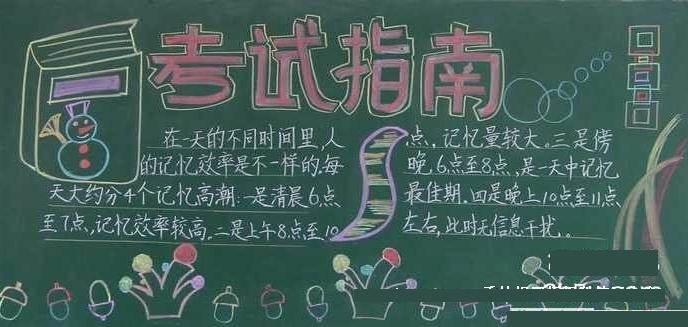 考试指南
在一天的不同时间里,人
的记忆效率是不一样的.每
天大约分4个记忆高潮:一是清晨6点
至7点,记忆效率较高。二是上午8点至10
点,记忆量较大。三是傍
晚6点至8点,是一天中记忆
最佳期.四是晚上10点至11点
左右,此时无信息干扰。